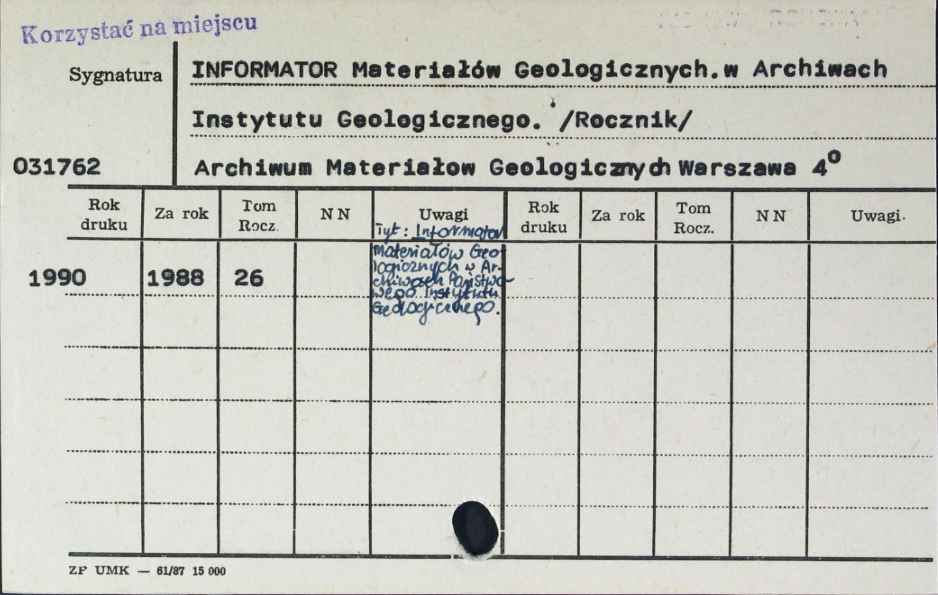 Korzystać na miejscu
Sygnatura
INFORMATOR Materiałów Geologicznych.w Archiwach
Instytutu Geologicznego. /Rocznik/
031762
Archiwum Materiałow Geologicznych Warszawa 4°
Rok druku Za rok Tom Rocz. NN Uwagi Rok druku Za rok Tom Rocz. NN Uwagi.
1990 1988 26
Tyt: Informator
Materiałów Geo
logicznych w Ar-
chiwach Państwo-
wego Instytutu
Geologicznego.
ZP UMK — 61/87 15 000